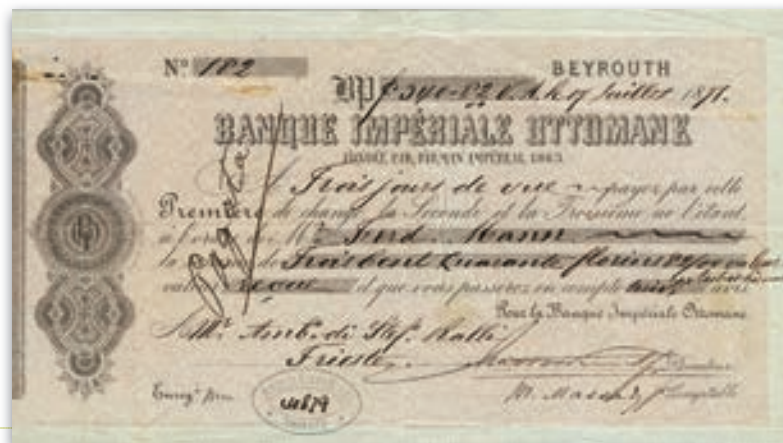 Nº 182 BEYROUTH
BP f. 340-82 Juillet 1871.
BANQUE IMPÉRIALE OTTOMANE
FONDÉE PAR FIRMAN IMPÉRIAL 1863
A Trois jours de vue payez par cette
Première de change la Seconde et la Troisième ne l'étant
à l'ordre de Mr. Ferd. Mann
la somme de Trois Cent Quarante florins 82/00
valeur reçue et que vous passerez en compte avis
Pour la Banque Impériale Ottomane
Pagata
A Mr. Amb. di Stef. Ralli
Trieste